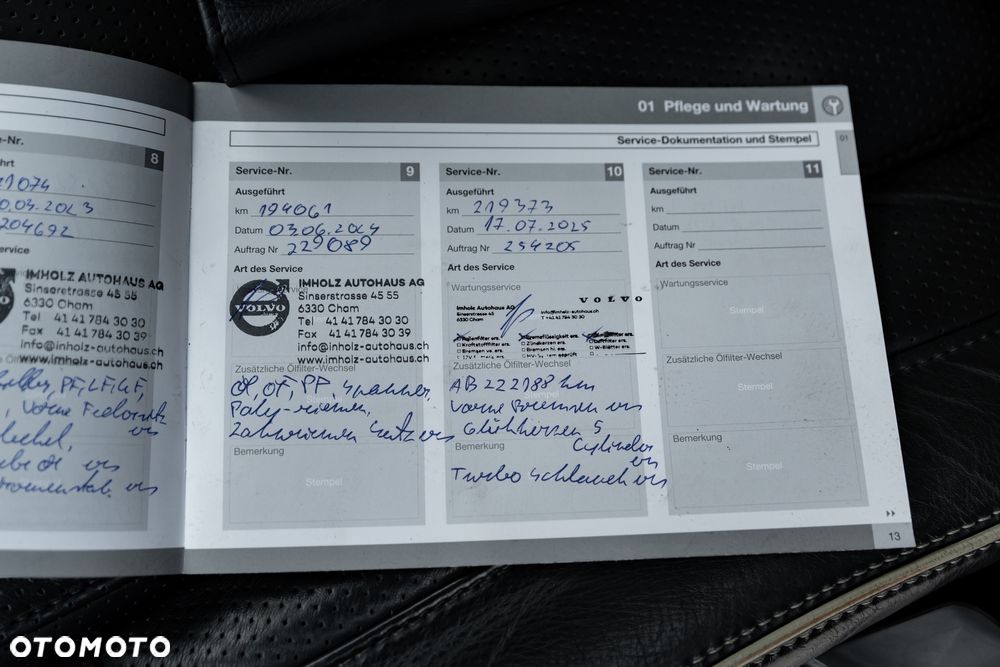 01 Pflege und Wartung
01
Service-Dokumentation und Stempel
e-Nr.
8
204692
ervice
IMHOLZ AUTOHAUS AG
Sinserstrasse 45 55
6330 Cham
Tel 41 41 784 30 30
Fax 41 41 784 30 39
info@imholz-autohaus.ch
www.imholz-autohaus.ch
Service-Nr. 9
Ausgeführt
km 194061
Datum 03.06.2024
Auftrag Nr 229089
Art des Service
IMHOLZ AUTOHAUS AG
Sinserstrasse 45 55
6330 Cham
Tel 41 41 784 30 30
Fax 41 41 784 30 39
info@imholz-autohaus.ch
www.imholz-autohaus.ch
VOLVO
Zusätzliche Ölfilter-Wechsel
Öl, OF, PF, Spanner,
Poly-riemen,
Zahnriemen Satz ers
Bemerkung
Stempel
Service-Nr. 10
Ausgeführt
km 219373
Datum 17.07.2025
Auftrag Nr 254205
Art des Service
Wartungsservice
VOLVO
Imholz Autohaus AG
Sinserstrasse 45
6330 Cham
info@imholz-autohaus.ch
T +41 41 784 30 30
Kraftstofffilter ers.
Zündkerzen ers.
Bremsen vo. ers.
Bremsen hi. ers.
W-Blätter ers.
Zusätzliche Ölfilter-Wechsel
AB 222188 km
vorne Bremsen ers
Glühkerzen 5
Cylinder
ers
Bemerkung
Turbo Schlauch ers
Service-Nr. 11
Ausgeführt
km
Datum
Auftrag Nr
Art des Service
Wartungsservice
Stempel
Zusätzliche Ölfilter-Wechsel
Stempel
Bemerkung
Stempel
13
OTOMOTO